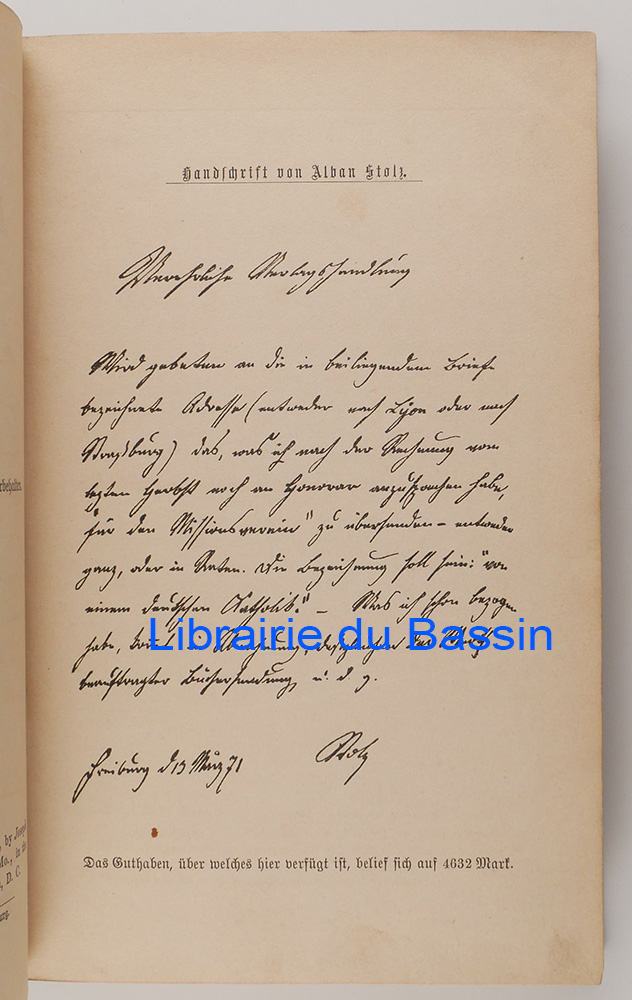 Handschrift von Alban Stolz.
Verehrliche Verlagshandlung
Wird gebeten an die in beiliegendem Briefe
bezeichnete Adresse (entweder nach Lyon oder nach
Straßburg) das, was ich nach der Rechnung vom
letzten Herbst noch an Honorar anzusprechen habe,
"für den Missionsverein" zu übersenden – entweder
ganz, oder in Raten. Die Bezeichnung soll sein: "von
einem deutschen Katholik." – Was ich schon bezogen
habe, kommt in Abrechnung, desgleichen der Werth
Librairie du Bassin
beauftragter Büchersendung, u. d. g.
Freiburg d 13 März 71
Stolz
Das Guthaben, über welches hier verfügt ist, belief sich auf 4632 Mark.
rbehalten.
, by Joseph
Mo., in the
, D. C.
urg.